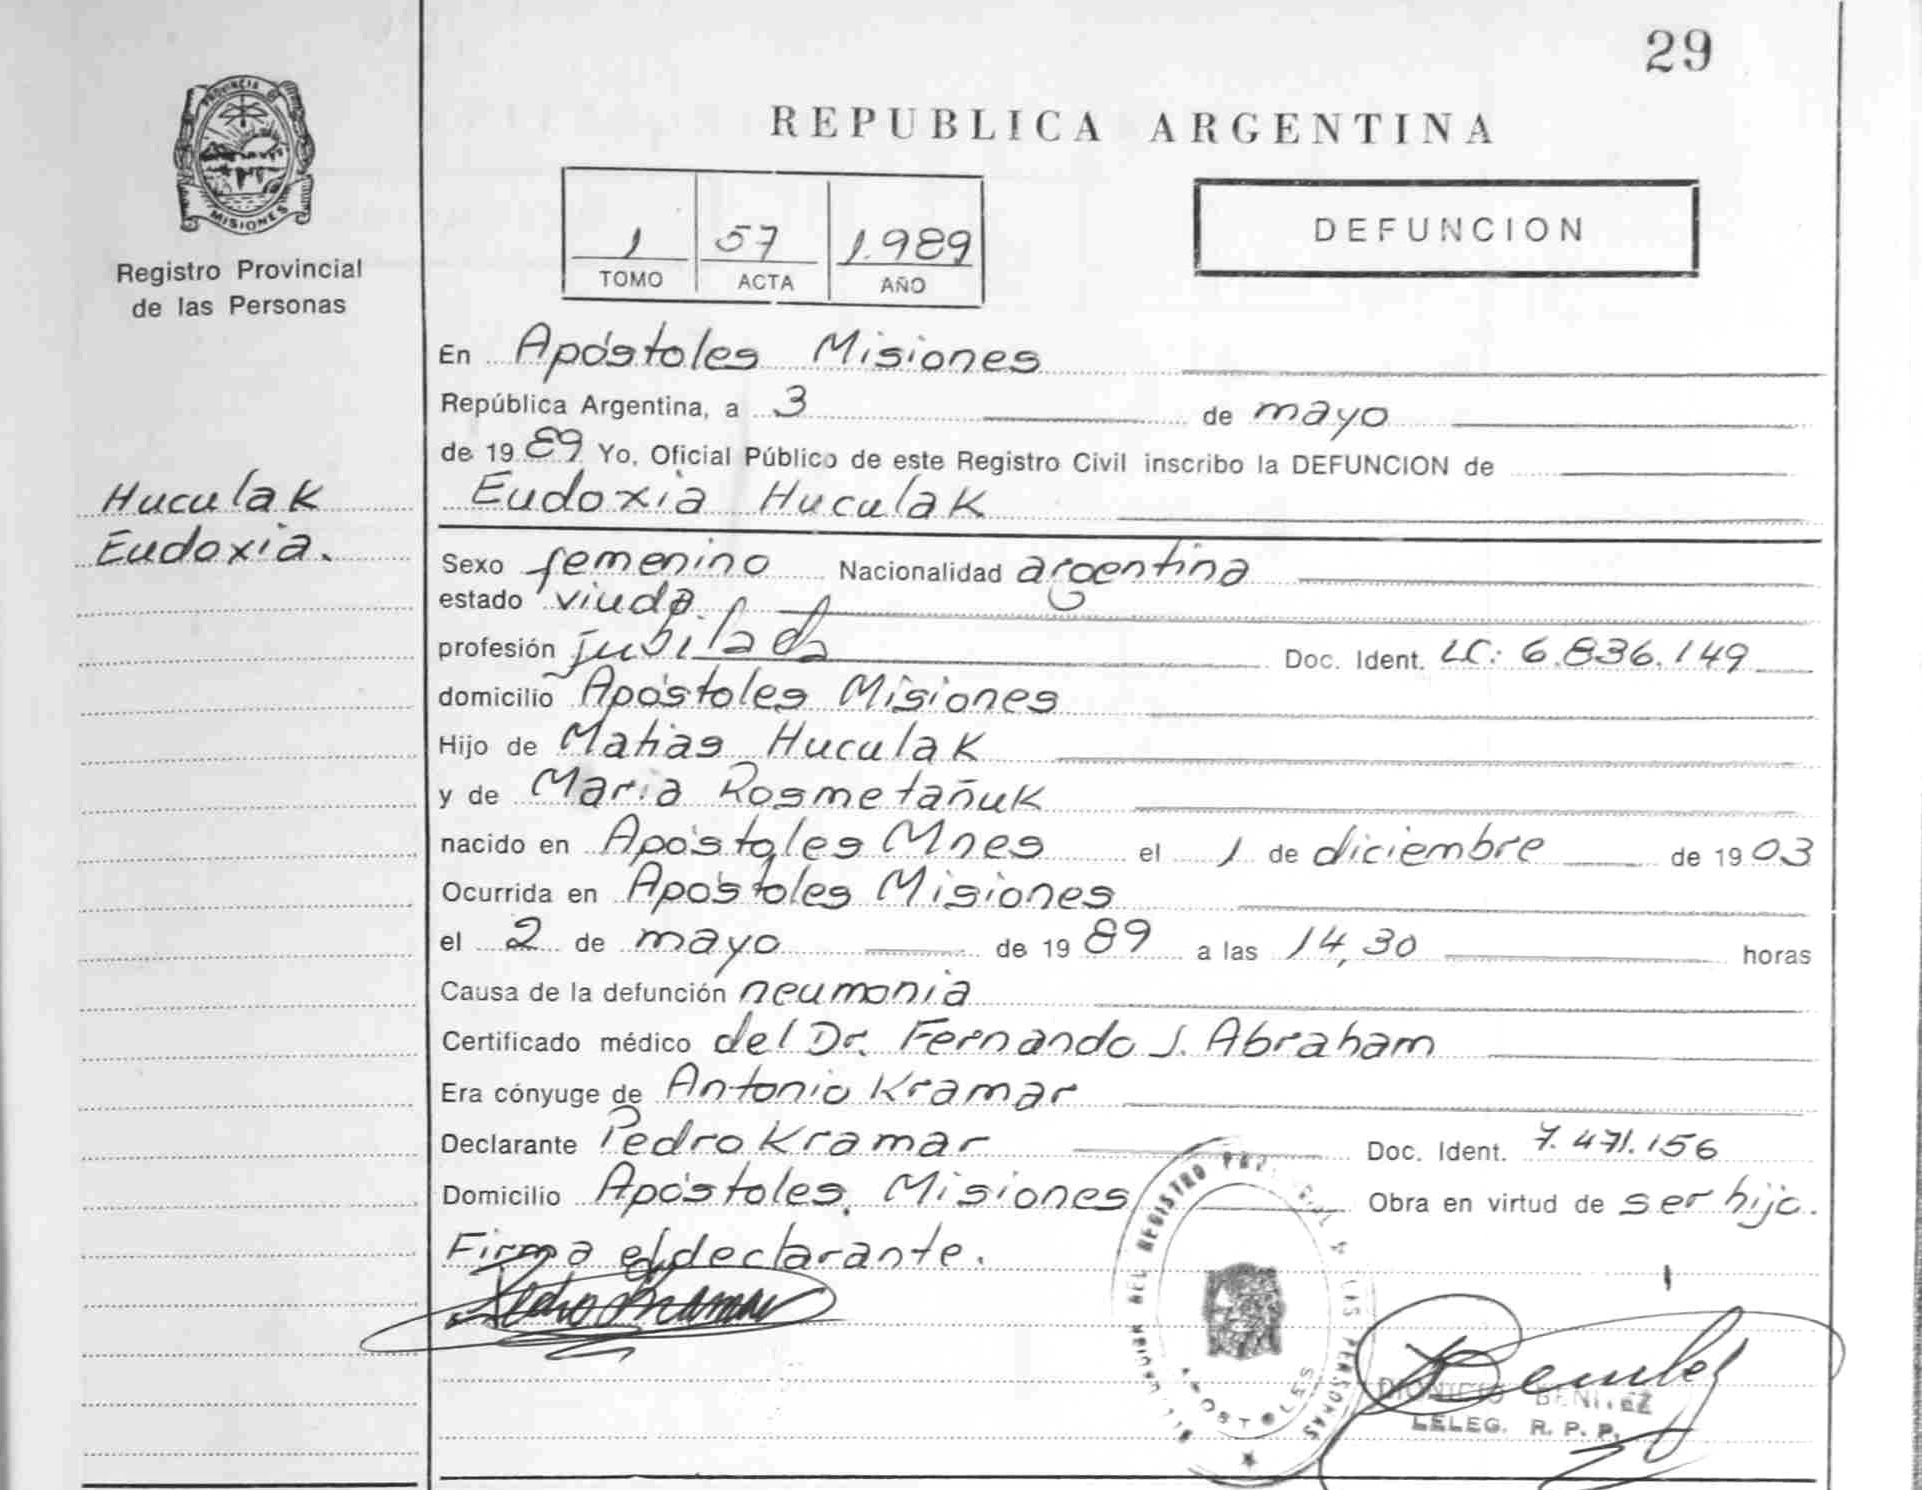 29
PROVINCIA DE
MISIONES
Registro Provincial
de las Personas
REPUBLICA ARGENTINA
1 57 1.989
TOMO ACTA AÑO
DEFUNCION
Huculak
Eudoxia.
En Apóstoles Misiones
República Argentina, a 3 de mayo
de 1989 Yo, Oficial Público de este Registro Civil inscribo la DEFUNCION de
Eudoxia Huculak
Sexo femenino Nacionalidad argentina
estado viuda
profesión jubilada Doc. Ident. LC: 6.836.149
domicilio Apóstoles Misiones
Hijo de Matias Huculak
y de Maria Rosmetañuk
nacido en Apóstoles Mnes el 1 de diciembre de 1903
Ocurrida en Apóstoles Misiones
el 2 de mayo de 1989 a las 14,30 horas
Causa de la defunción neumonia
Certificado médico del Dr. Fernando J. Abraham
Era cónyuge de Antonio Kramar
Declarante Pedro Kramar Doc. Ident. 7.471.156
Domicilio Apóstoles, Misiones Obra en virtud de ser hijo.
Firma el declarante.
Pedro Kramar
DEL REGISTRO PERSONAS
APOSTOLES
Benitez
DIONICIO BENITEZ
LELEG. R. P. P.